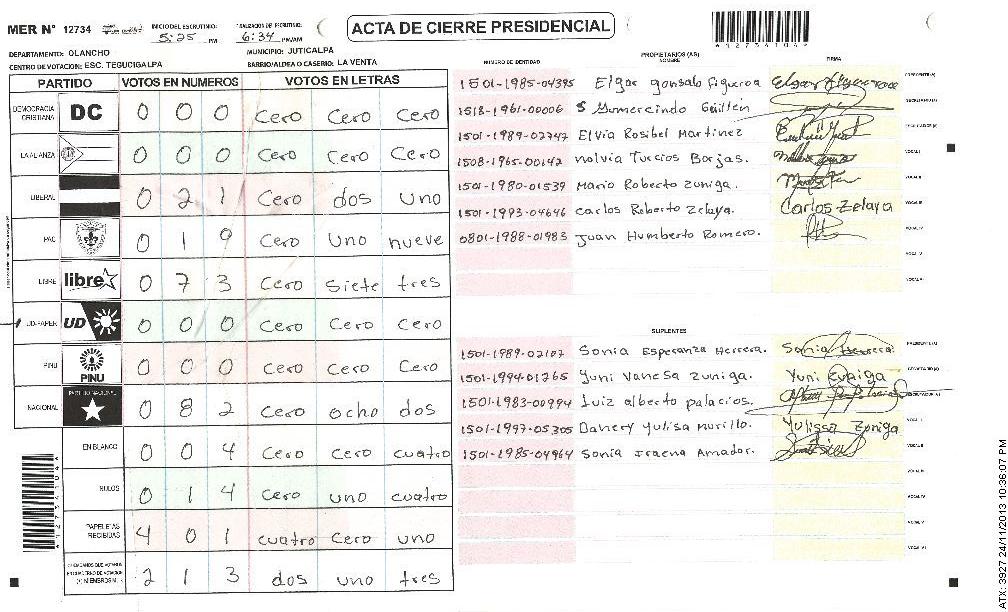 ACTA DE CIERRE PRESIDENCIAL
MER N° 12734
INICIO DEL ESCRUTINIO: 5:25 PM
FINALIZACION DE ESCRUTINIO: 6:34 PM/AM
DEPARTAMENTO: OLANCHO MUNICIPIO: JUTICALPA
CENTRO DE VOTACION: ESC. TEGUCIGALPA BARRIO/ALDEA O CASERIO: LA VENTA
PARTIDO VOTOS EN NUMEROS VOTOS EN LETRAS
DEMOCRACIA CRISTIANA DC 0 0 0 Cero Cero Cero
LA ALIANZA 0 0 0 Cero Cero Cero
LIBERAL 0 2 1 Cero dos uno
PAC 0 1 9 Cero uno nueve
LIBRE libre 0 7 3 Cero siete tres
UD-FAPER UD 0 0 0 Cero Cero Cero
PINU PINU 0 0 0 Cero Cero Cero
NACIONAL PARTIDO NACIONAL 0 8 2 Cero ocho dos
EN BLANCO 0 0 4 Cero Cero cuatro
NULOS 0 1 4 Cero uno cuatro
PAPELETAS RECIBIDAS 4 0 1 cuatro Cero uno
2 1 3 dos uno tres
PROPIETARIOS (AS)
NUMERO DE IDENTIDAD NOMBRE FIRMA
1501-1985-04395 Elgar gonsalo Figueroa PRESIDENTE(A)
1518-1961-00006 S Gumercindo Guillen SECRETARIO(A)
1501-1989-02747 Elvia Rosibel Martinez ESCRUTADOR(A)
1508-1965-00142 nolvia Turcios Borjas. VOCAL I
1501-1980-01539 Mario Roberto zuniga. VOCAL II
1501-1993-04646 carlos Roberto zelaya. Carlos Zelaya VOCAL III
0801-1988-01983 Juan Humberto Romero. VOCAL IV
VOCAL V
VOCAL VI
SUPLENTES
1501-1989-02107 Sonia Esperanza Herrera. Sonia Herrera PRESIDENTE(A)
1501-1994-01265 Yuni Vanesa zuniga. Yuni Zuniga SECRETARIO(A)
1501-1983-00994 Luiz alberto palacios. ESCRUTADOR(A)
1501-1997-05305 Danery Yulisa Murillo. Yulissa Zoniga VOCAL I
1501-1985-04964 Sonia Iraena Amador. VOCAL II
VOCAL III
VOCAL IV
VOCAL V
VOCAL VI
ATX: 3927 24/11/2013 10:36:07 PM